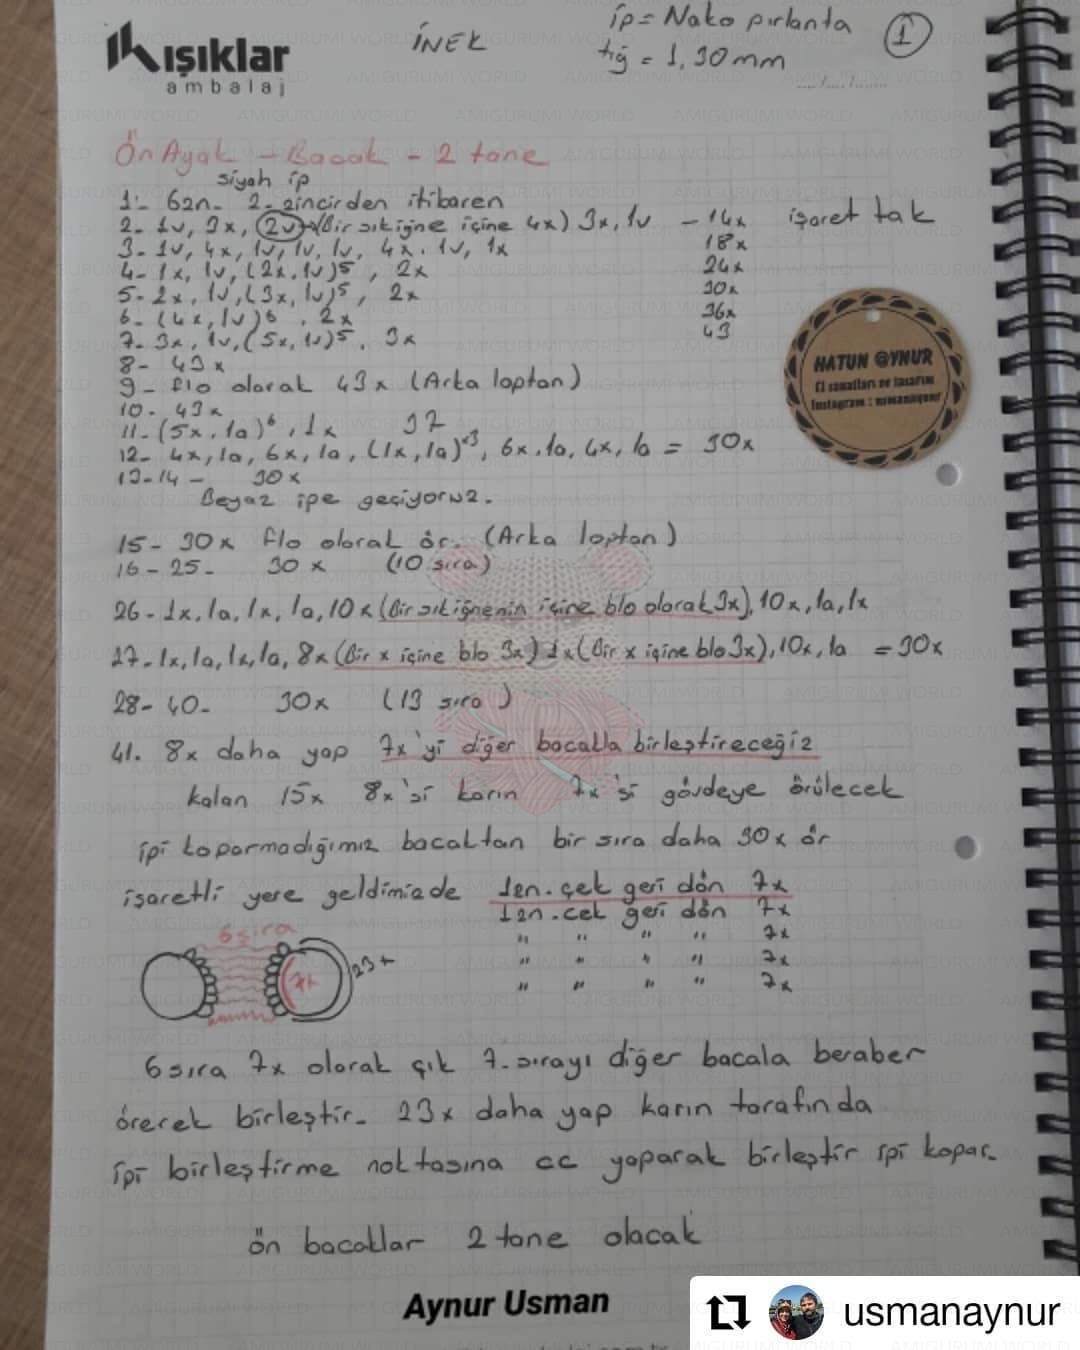 ışıklar
ambalaj
İNEK
ip = Nako pırlanta
tığ = 1,30mm
1
Ön Ayak - Bacak - 2 tane
siyah ip
1- 6zn- 2. zincirden itibaren
2- 1v, 3x, (2v)→(Bir sıkiğne içine 4x) 3x, 1v - 14x işaret tak
3- 1v, 4x, 1v, 1v, 1v, 4x, 1v, 1x 18x
4- 1x, 1v, (2x, 1v)5, 2x 24x
5- 2x, 1v, (3x, 1v)5, 2x 30x
6- (4x, 1v)6, 2x 36x
7- 3x, 1v, (5x, 1v)5, 3x 43
8- 43x
9- flo olarak 43x (Arka loptan)
10- 43x
11- (5x, 1a)6, 1x 37
12- 4x, 1a, 6x, 1a, (1x, 1a)x3, 6x, 1a, 4x, 1a = 30x
13-14- 30x
Beyaz ipe geçiyoruz.
15- 30x flo olarak ör. (Arka loptan)
16-25- 30x (10 sıra)
26- 1x, 1a, 1x, 1a, 10x (Bir sıkiğnenin içine blo olarak 3x), 10x, 1a, 1x
27- 1x, 1a, 1x, 1a, 8x (Bir x içine blo 3x) 1x (Bir x içine blo 3x), 10x, 1a = 30x
28-40- 30x (13 sıra)
41. 8x daha yap 7x'yi diğer bacakla birleştireceğiz
kalan 15x 8x'si karın 7x'si gövdeye örülecek
ipi koparmadığımız bacaktan bir sıra daha 30x ör
işaretli yere geldimizde 1zn. çek geri dön 7x
1zn. çek geri dön 7x
" " " " 7x
" " " " 7x
" " " " 7x
6 sıra
7x
23x
6 sıra 7x olarak çık 7. sırayı diğer bacala beraber
örerek birleştir. 23x daha yap karın tarafında
ipi birleştirme noktasına cc yaparak birleştir ipi kopar.
ön bacaklar 2 tane olacak
Aynur Usman
HATUN @YNUR
El sanatları ve tasarım
Instagram : usmanaynur
usmanaynur